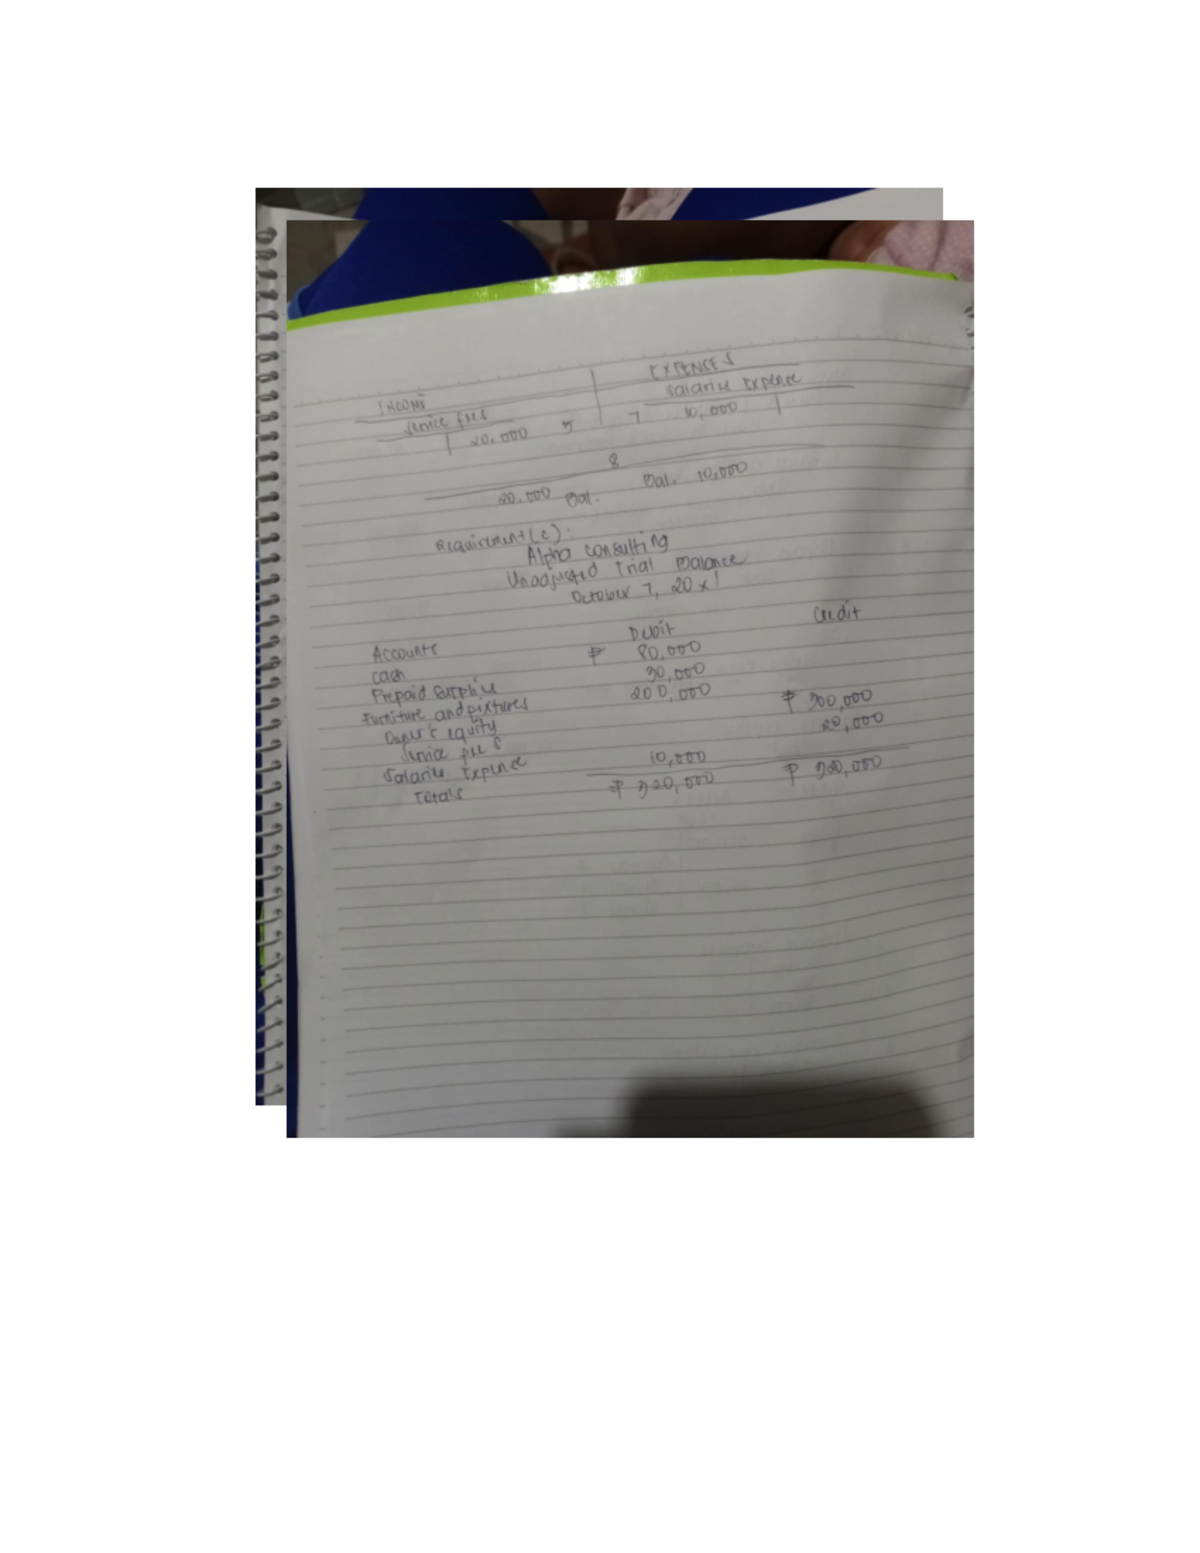 INCOME
EXPENSES
Service fees
Salaries Expence
20,000 5
7 10,000
8
20,000 Bal.
Bal. 10,000
Requirement (c):
Alpha Consulting
Unadjusted Trial Balance
October 7, 20x1
Accounts Debit Credit
Cash ₱ 80,000
Prepaid Supplies 30,000
Furniture and fixtures 200,000
Owner's equity ₱ 300,000
Service fees 20,000
Salaries Expence 10,000
Totals ₱ 320,000 ₱ 320,000